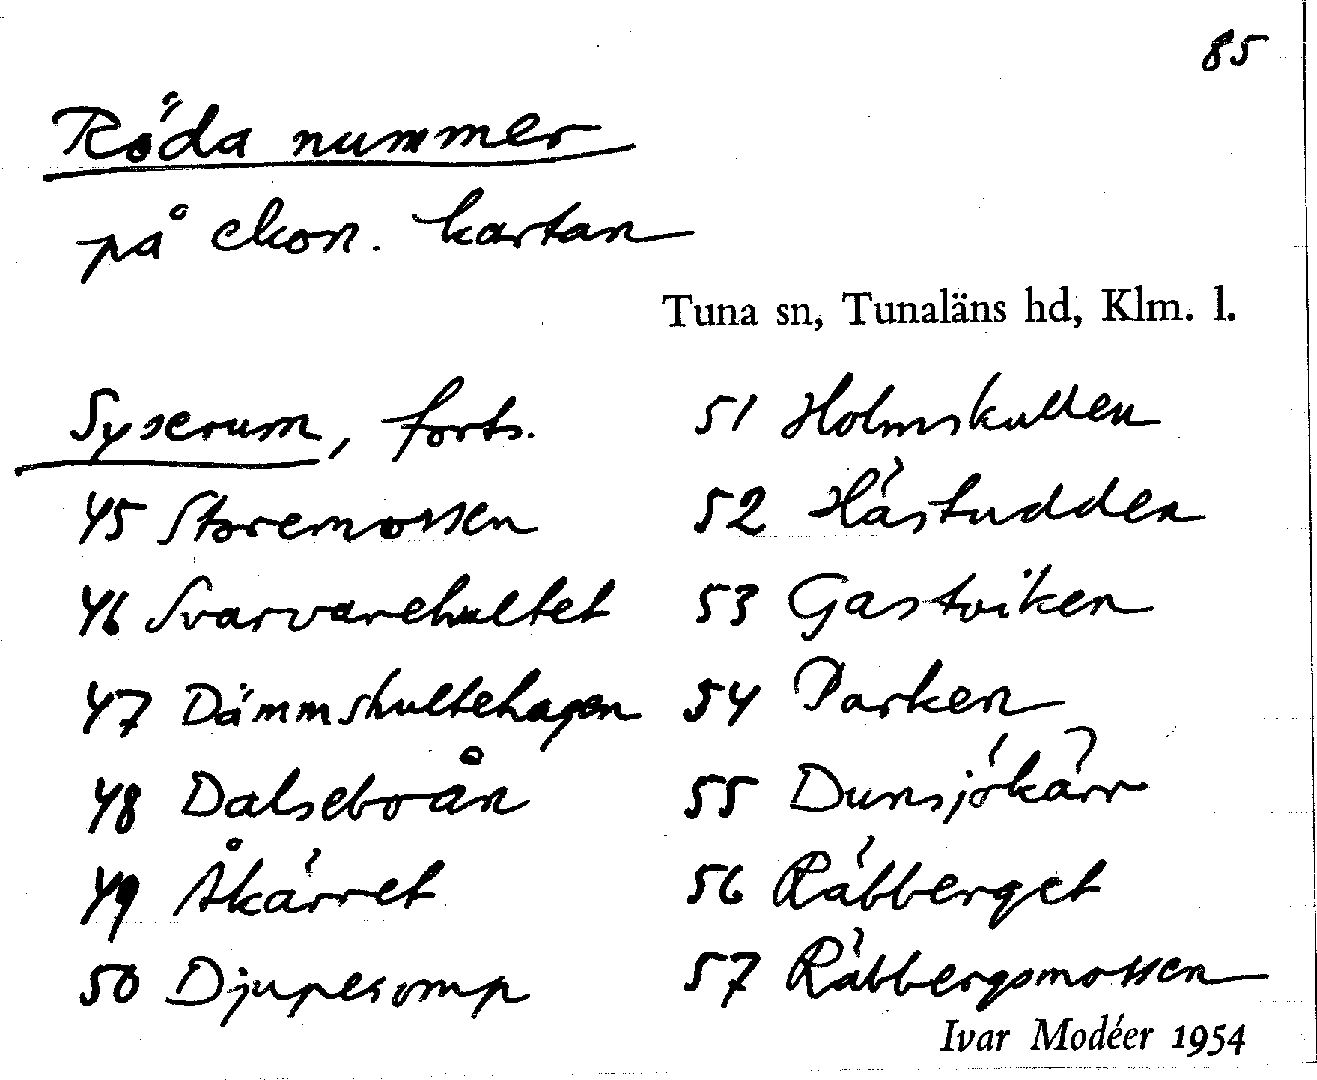 85
Röda nummer
på ekon. kartan
Tuna sn, Tunaläns hd, Klm. l.
Syserum, forts.
45 Storemossen
46 Svarvarehultet
47 Dämmshultehagen
48 Dalseboån
49 Åkärret
50 Djupesomp
51 Holmskullen
52 Hästudden
53 Gastviken
54 Parken
55 Dunsjökärr
56 Räbberget
57 Räbbergsmossen
Ivar Modéer 1954